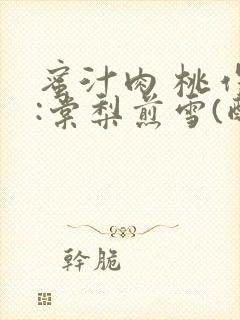 蜜汁肉桃作
:棠梨煎雪(
幹脆